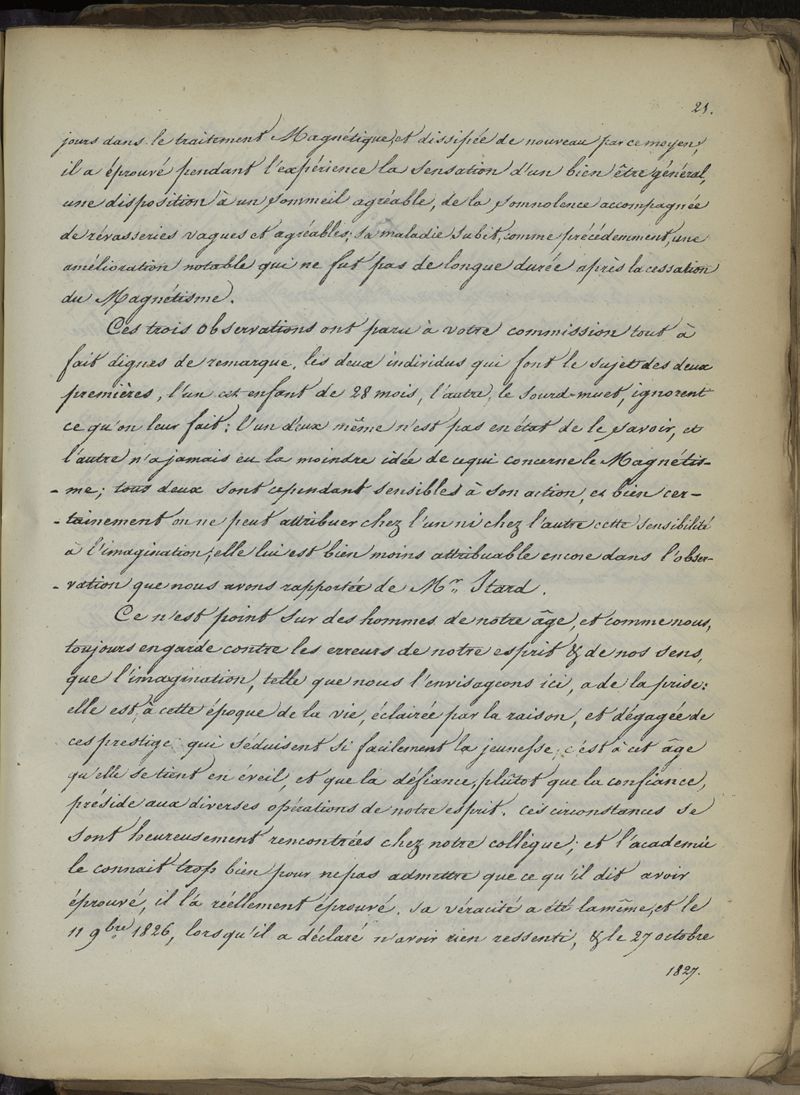 21.
jours dans le traitement Magnétique, et dissipée de nouveau par ce moyen;
il a éprouvé pendant l'expérience la sensation d'un bien être général,
une disposition à un sommeil agréable, de la somnolence accompagnée
de rêvasseries vagues et agréables; sa maladie subit, comme précédemment, une
amélioration notable qui ne fut pas de longue durée après la cessation
du Magnétisme.
Ces trois observations ont paru à votre commission tout à
fait dignes de remarque, les deux individus qui font le sujet des deux
premières, l'un cet enfant de 28 mois, l'autre, le sourd-muet, ignorent
ce qu'on leur fait: l'un d'eux même n'est pas en état de le savoir, et
l'autre n'a jamais eu la moindre idée de ce qui concerne le Magnétis-
-me; tous deux sont cependant sensibles à son action, et bien cer-
-tainement on ne peut attribuer chez l'un ni chez l'autre cette sensibilité
à l'imagination; elle lui est bien moins attribuable encore dans l'obser-
-vation que nous avons rapportée de Mr. Itard.
Ce n'est point sur des hommes de notre âge, et comme nous,
toujours en garde contre les erreurs de notre esprit & de nos sens,
que l'imagination, telle que nous l'envisageons ici, a de la prise:
elle est, à cette époque de la vie, éclairée par la raison, et dégagée de
ces prestige qui séduisent si facilement la jeunesse; c'est à cet âge
qu'elle se tient en éveil, et que la défiance, plûtot que la confiance,
préside aux diverses opérations de notre esprit. Ces circonstances se
sont heureusement rencontrées chez notre collègue; et l'académie
le connait trop bien pour ne pas admettre que ce qu'il dit avoir
éprouvé, il l'a réellement éprouvé. Sa véracité a été la même, et le
11 9bre 1826, lorsqu'il a déclaré n'avoir rien ressenti, & le 27 octobre
1827.